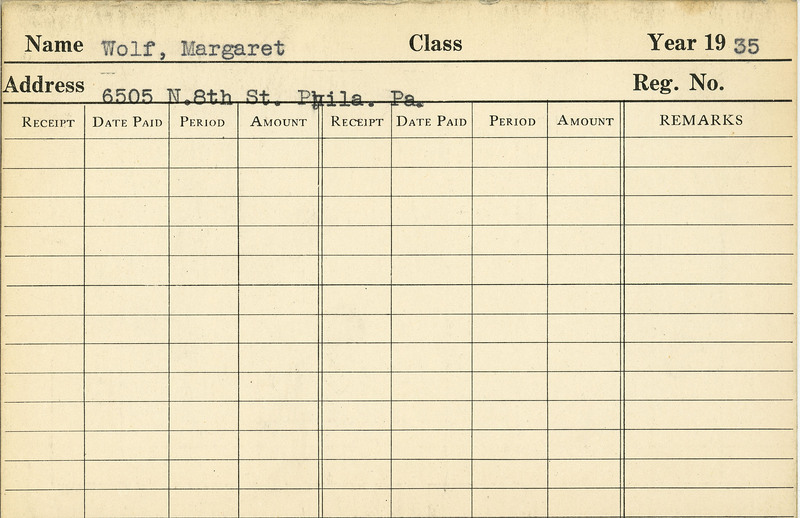 Name Wolf, Margaret Class Year 19 35
Address 6505 N.8th St. Phila. Pa. Reg. No.
RECEIPT DATE PAID PERIOD AMOUNT RECEIPT DATE PAID PERIOD AMOUNT REMARKS